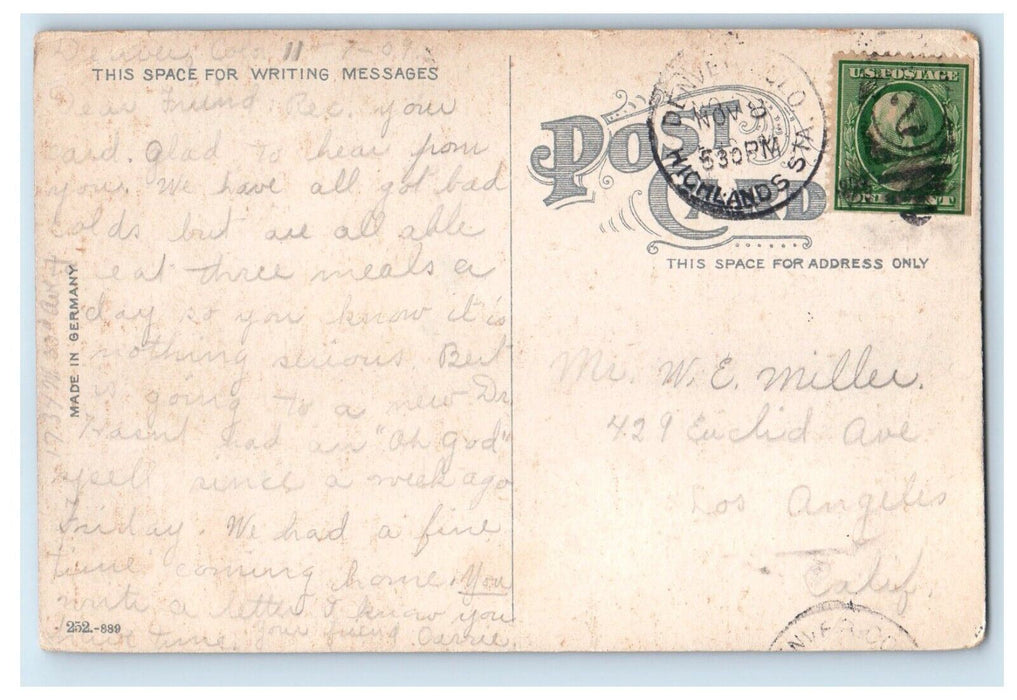 Denver Colo 11-7-09
THIS SPACE FOR WRITING MESSAGES
Dear Friend Rec. your
card. glad to hear from
you. We have all got bad
colds but are all able
eat three meals a
day so you know it is
nothing serious. Bert
is going to a new Dr
Hasnt had an "Oh god"
yell since a week ago
Friday. We had a fine
time coming home. You
write a letter I know you
have time. Your friend Carrie.
MADE IN GERMANY
252.-889
POST CARD
DENVER COLO.
NOV 8
530PM
HIGHLANDS STA.
U.S. POSTAGE
ONE CENT
2
THIS SPACE FOR ADDRESS ONLY
Mr. W. E. Miller.
429 Euclid Ave
Los Angeles
Calif.
DENVER COLO